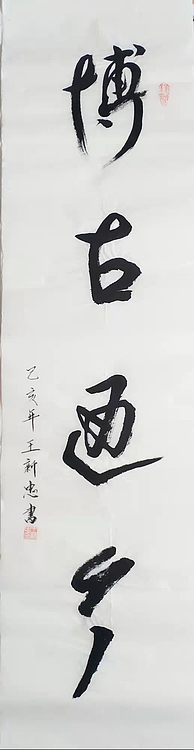 博古通今
乙亥年王新忠書